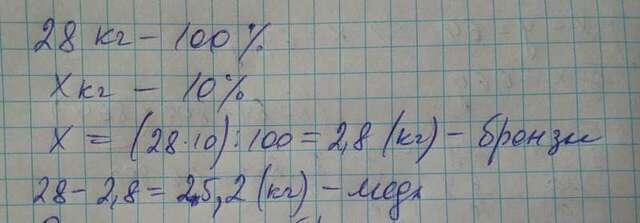 28 кг – 100 %
х кг – 10%
х = (28·10):100 = 2,8 (кг) – бронзы
28 – 2,8 = 25,2 (кг) – меди